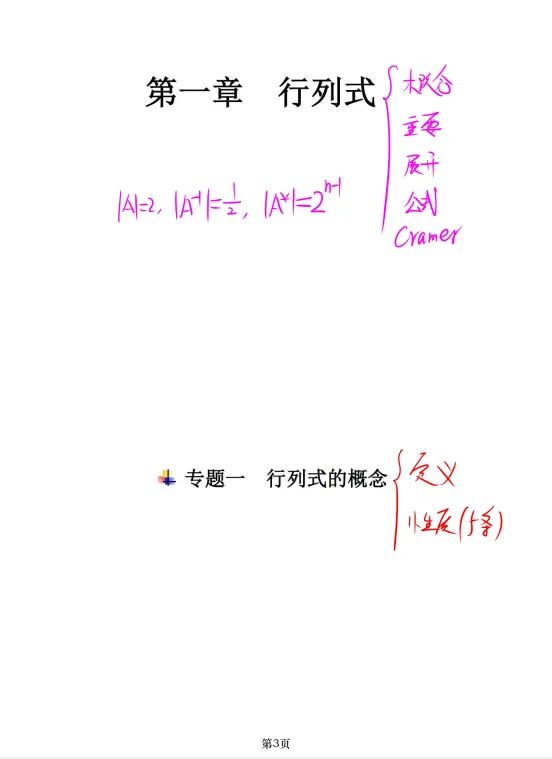 第一章 行列式
概念
主要
展开
公式
Cramer
|A|=2, |A⁻¹|=1/2, |A*|=2ⁿ⁻¹
专题一 行列式的概念
定义
性质(5条)
第3页